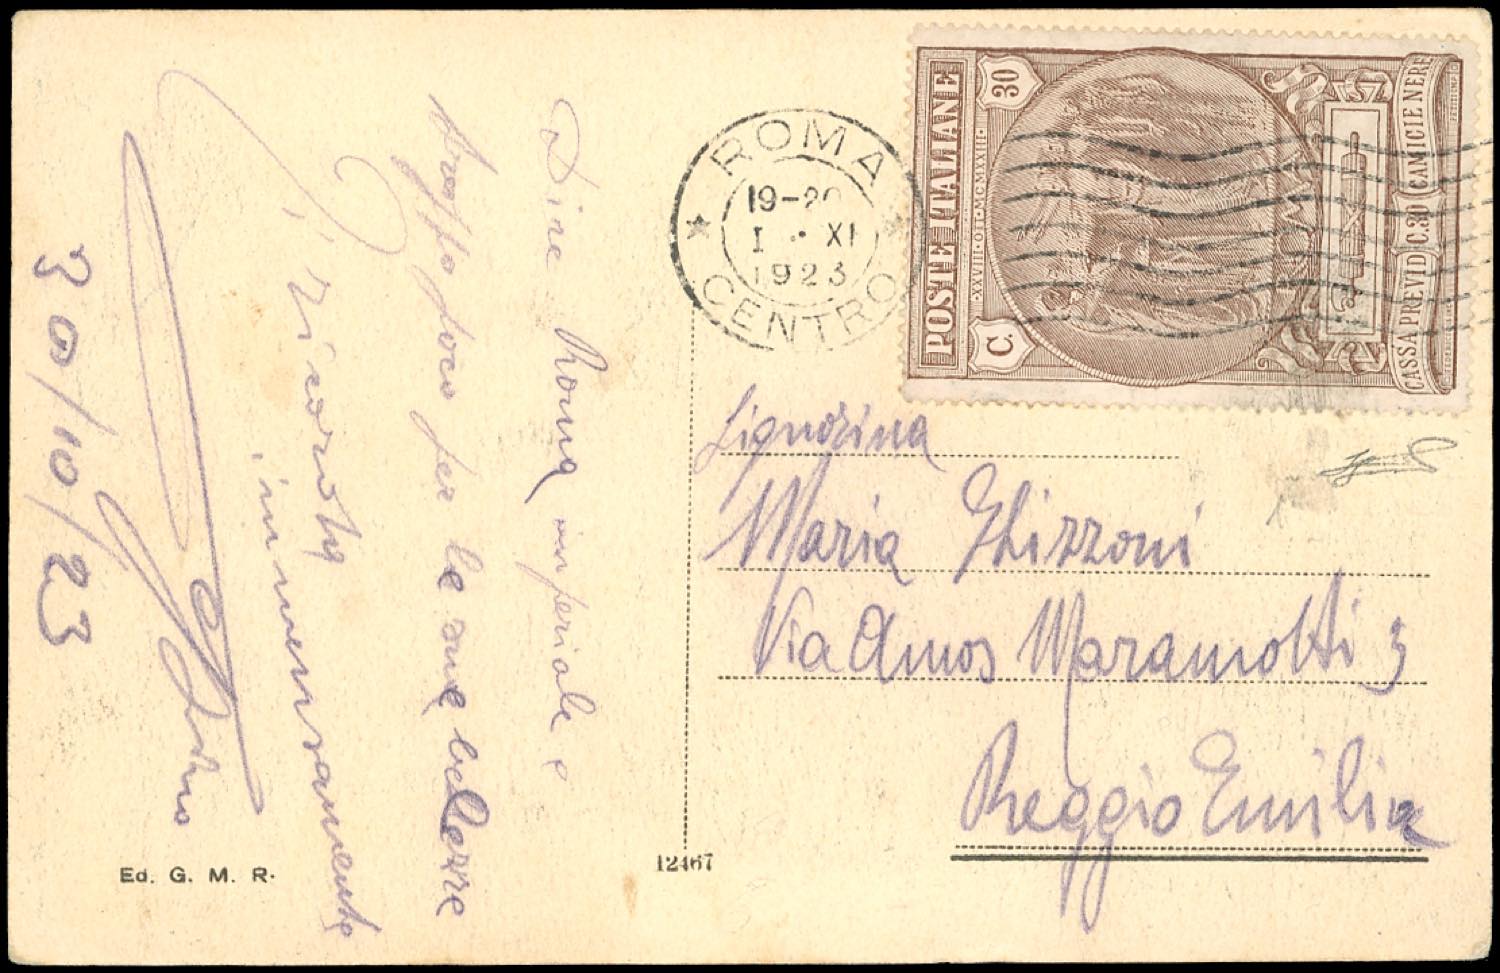 Dire Roma imperiale è
troppo poco per le sue bellezze
ricordo
immensamente
30/10/23
Ed. G. M. R.
12467
ROMA
CENTRO
19-20
1 · XI
1923
POSTE ITALIANE
XXVIII·OTT·MCMXXIII
C. 30
CASSA PREVID C.30 CAMICIE NERE
Signorina
Maria Ghizzoni
Via Amos Maramotti 3
Reggio Emilia